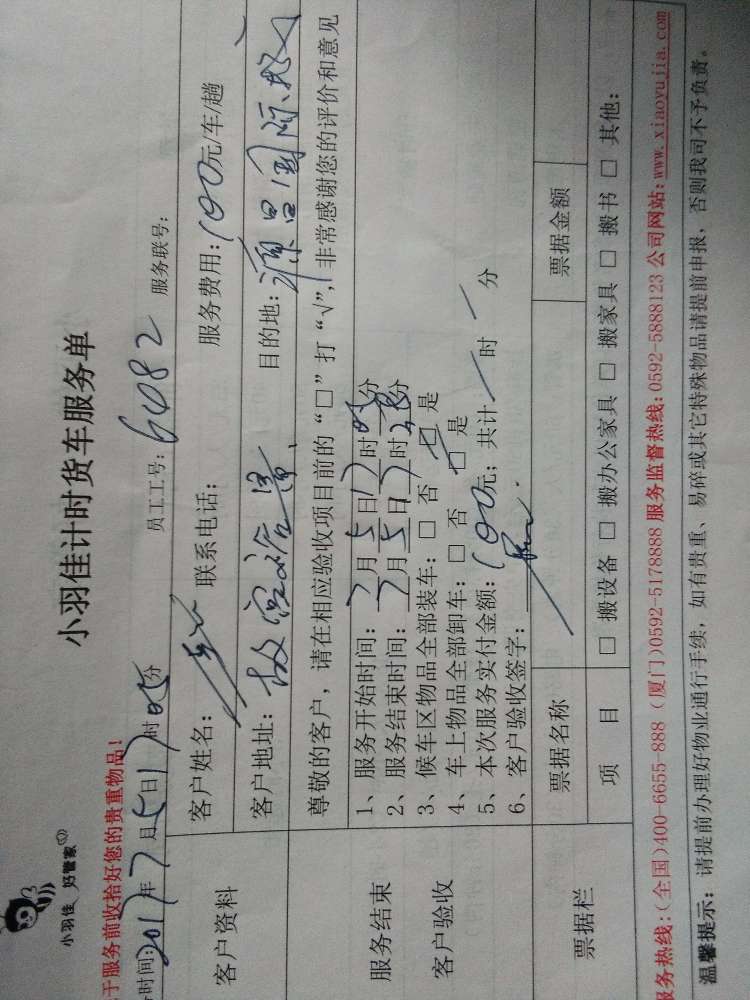 小羽佳 好管家
小羽佳计时货车服务单
于服务前收拾好您的贵重物品!
时间:2017年7月5日17时05分 员工工号:6082 服务联号:
客户资料
客户姓名: 联系电话: 服务费用:100元/车/趟
客户地址: 目的地:源昌国际
尊敬的客户，请在相应验收项目前的“□”打“√”，非常感谢您的评价和意见
服务结束
客户验收
1、服务开始时间:7月5日17时05分
2、服务结束时间:7月5日17时28分
3、候车区物品全部装车:□ 否 □ 是
4、车上物品全部卸车:□ 否 □ 是
5、本次服务实付金额:100元; 共计 时 分
6、客户验收签字:
票据栏
票据名称 票据金额
项 目 □ 搬设备 □ 搬办公家具 □ 搬家具 □ 搬书 □ 其他:
服务热线:(全国)400-6655-888 (厦门)0592-5178888 服务监督热线:0592-5888123 公司网站:www.xiaoyujia.com
温馨提示:请提前办理好物业通行手续，如有贵重、易碎或其它特殊物品请提前申报，否则我司不予负责。